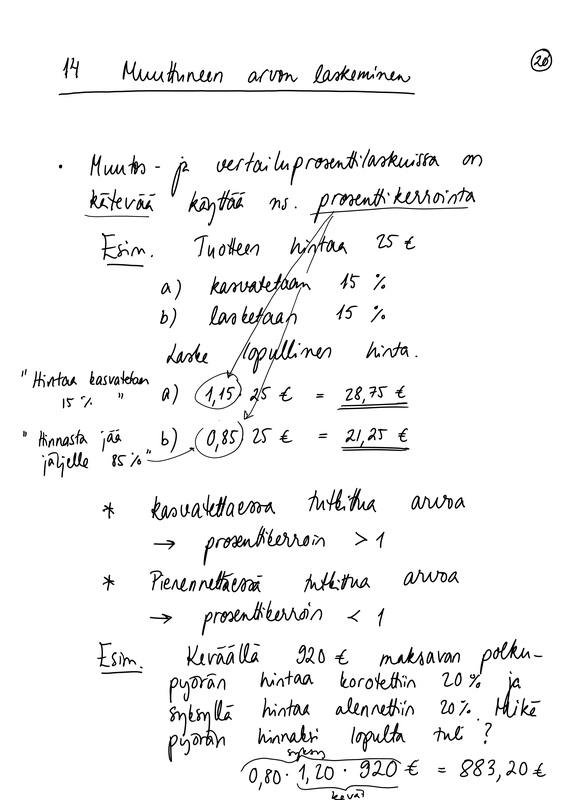 14 Muuttuneen arvon laskeminen
20
• Muutos- ja vertailuprosenttilaskuissa on
kätevää käyttää ns. prosenttikerrointa
Esim. Tuotteen hintaa 25 €
a) kasvatetaan 15 %
b) lasketaan 15 %
Laske lopullinen hinta.
"Hintaa kasvatetaan
15 % "
a) 1,15 · 25 € = 28,75 €
"Hinnasta jää
jäljelle 85 %"
b) 0,85 · 25 € = 21,25 €
* Kasvatettaessa tutkittua arvoa
→ prosenttikerroin > 1
* Pienennettäessä tutkittua arvoa
→ prosenttikerroin < 1
Esim. Keväällä 920 € maksavan polku-
pyörän hintaa korotettiin 20 % ja
syksyllä hintaa alennettiin 20 %. Mikä
pyörän hinnaksi lopulta tuli ?
syksy
0,80 · 1,20 · 920 € = 883,20 €
kevät